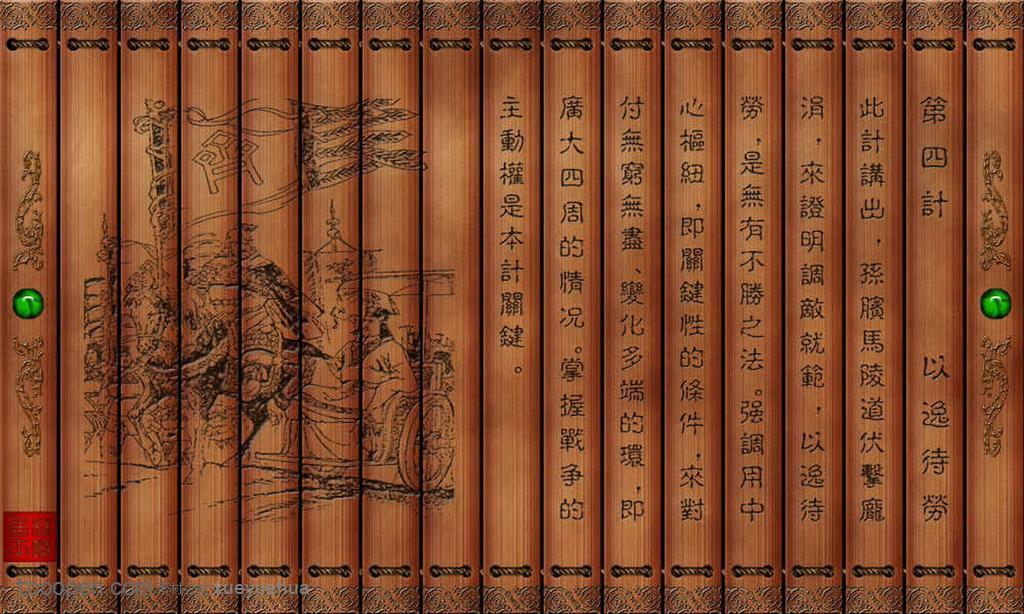 第四計 以逸待勞
此計講出，孫臏馬陵道伏擊龐
涓，來證明調敵就範，以逸待
勞，是無有不勝之法。强調用中
心樞紐，即關鍵性的條件，來對
付無窮無盡、變化多端的環，即
廣大四周的情况。掌握戰争的
主動權是本計關鍵。
齊